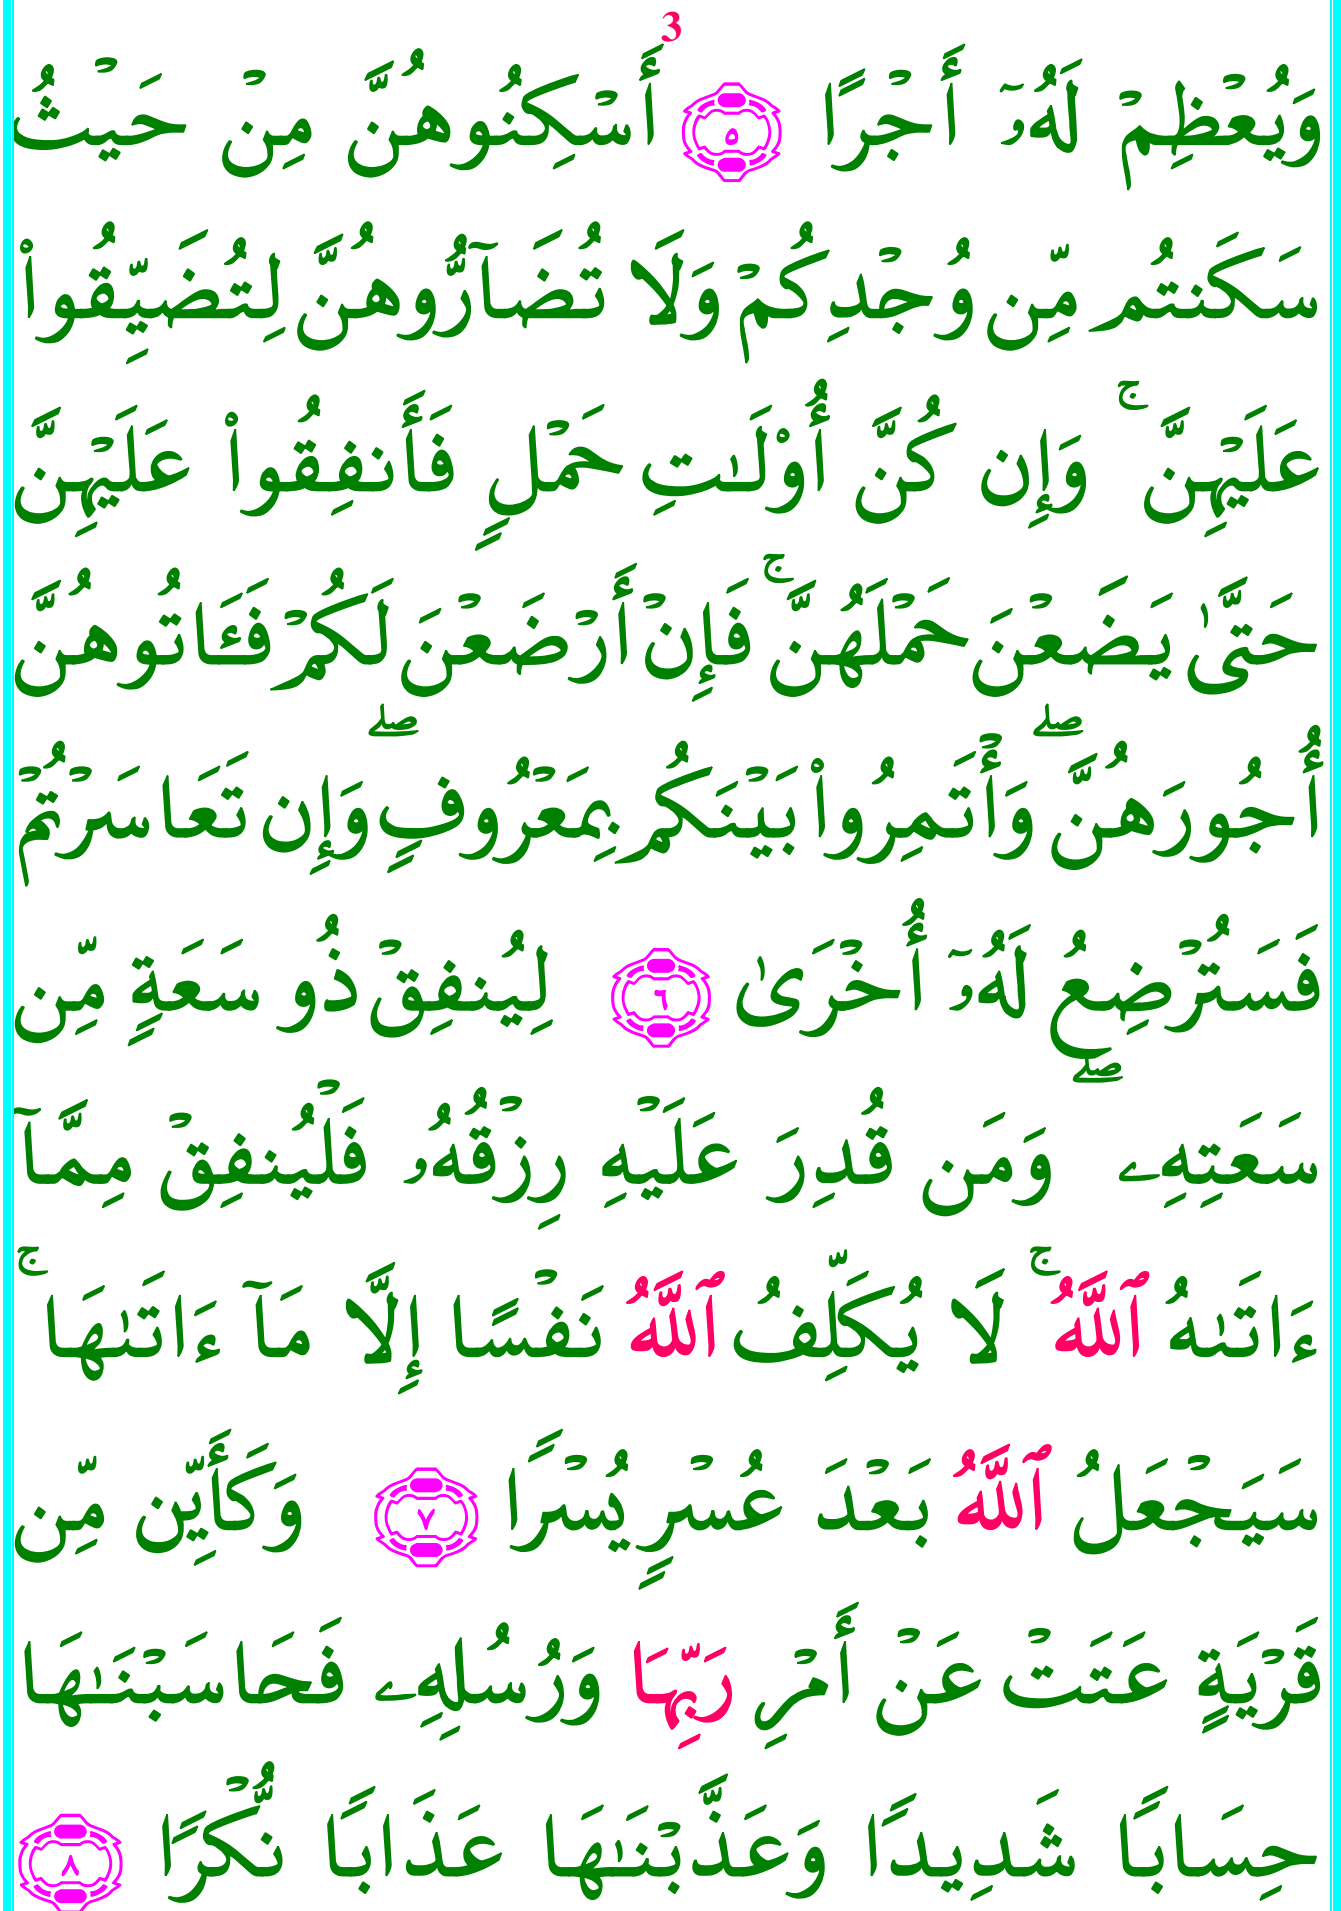 3
وَيُعْظِمْ لَهُۥٓ أَجْرًا ٥ أَسْكِنُوهُنَّ مِنْ حَيْثُ
سَكَنتُم مِّن وُجْدِكُمْ وَلَا تُضَآرُّوهُنَّ لِتُضَيِّقُوا۟
عَلَيْهِنَّ ۚ وَإِن كُنَّ أُو۟لَـٰتِ حَمْلٍ فَأَنفِقُوا۟ عَلَيْهِنَّ
حَتَّىٰ يَضَعْنَ حَمْلَهُنَّ ۚ فَإِنْ أَرْضَعْنَ لَكُمْ فَـَٔاتُوهُنَّ
أُجُورَهُنَّ ۖ وَأْتَمِرُوا۟ بَيْنَكُم بِمَعْرُوفٍ ۖ وَإِن تَعَاسَرْتُمْ
فَسَتُرْضِعُ لَهُۥٓ أُخْرَىٰ ٦ لِيُنفِقْ ذُو سَعَةٍ مِّن
سَعَتِهِۦ ۖ وَمَن قُدِرَ عَلَيْهِ رِزْقُهُۥ فَلْيُنفِقْ مِمَّآ
ءَاتَىٰهُ ٱللَّهُ ۚ لَا يُكَلِّفُ ٱللَّهُ نَفْسًا إِلَّا مَآ ءَاتَىٰهَا ۚ
سَيَجْعَلُ ٱللَّهُ بَعْدَ عُسْرٍ يُسْرًا ٧ وَكَأَيِّن مِّن
قَرْيَةٍ عَتَتْ عَنْ أَمْرِ رَبِّهَا وَرُسُلِهِۦ فَحَاسَبْنَـٰهَا
حِسَابًا شَدِيدًا وَعَذَّبْنَـٰهَا عَذَابًا نُّكْرًا ٨